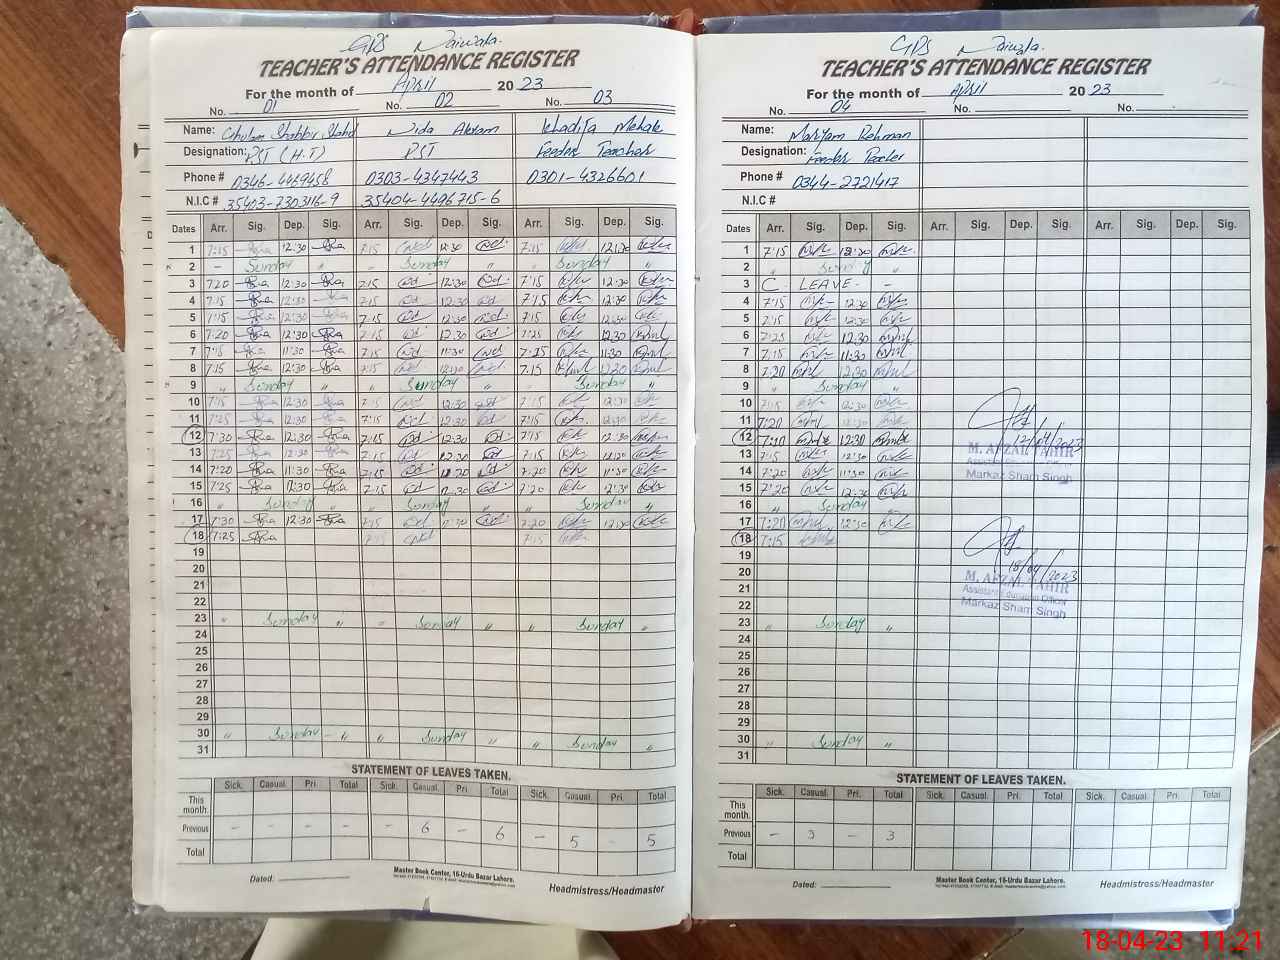 GPS Naiwala.
TEACHER'S ATTENDANCE REGISTER
For the month of April 2023
No. 01 No. 02 No. 03
Name: Ghulam Shabbir Shahd Nida Akram Khadija Mehak
Designation: PST (H.T) PST Feeder Teacher
Phone # 0346-4469458 0303-4347443 0301-4326601
N.I.C # 35403-7303116-9 35404-4496715-6
Dates Arr. Sig. Dep. Sig. Arr. Sig. Dep. Sig. Arr. Sig. Dep. Sig.
1 7:15 12:30 7:15 12:30 7:15 12:30
2 - Sunday " " Sunday " " Sunday "
3 7:20 12:30 7:15 12:30 7:15 12:30
4 7:15 12:30 7:15 12:30 7:15 12:30
5 7:15 12:30 7:15 12:30 7:15 12:30
6 7:20 12:30 7:15 12:30 7:25 12:30
7 7:15 11:30 7:15 11:30 7:25 11:30
8 7:15 12:30 7:15 12:30 7:15 12:30
9 " Sunday " " Sunday " " Sunday "
10 7:15 12:30 7:15 12:30 7:15 12:30
11 7:25 12:30 7:15 12:30 7:15 12:30
12 7:30 12:30 7:15 12:30 7:15 12:30
13 7:25 12:30 7:15 12:30 7:15 12:30
14 7:20 11:30 7:15 7:20 11:30
15 7:25 7:15 7:20 12:30
16 " Sunday " " Sunday " " Sunday "
17 7:30 12:30 7:15 7:20 12:30
18 7:25 7:15 7:15
19
20
21
22
23 " Sunday " " Sunday " " Sunday "
24
25
26
27
28
29
30 " Sunday " " Sunday " " Sunday "
31
STATEMENT OF LEAVES TAKEN.
Sick. Casual. Pri. Total Sick. Casual. Pri. Total Sick. Casual. Pri. Total
This month.
Previous - - - - - 6 - 6 - 5 - 5
Total
Dated:
Master Book Center, 16-Urdu Bazar Lahore.
Headmistress/Headmaster
GPS Naiwala.
TEACHER'S ATTENDANCE REGISTER
For the month of April 2023
No. 04 No. No.
Name: Maryam Rehman
Designation: Feeder Teacher
Phone # 0344-2721417
N.I.C #
Dates Arr. Sig. Dep. Sig. Arr. Sig. Dep. Sig. Arr. Sig. Dep. Sig.
1 7:15 12:30
2 " Sunday "
3 C. LEAVE. -
4 7:15 12:30
5 7:15 12:30
6 7:25 12:30
7 7:15 11:30
8 7:20 12:30
9 " Sunday "
10 7:15 12:30
11 7:20 12:30
12 7:20 12:30
12/04/2023
M. AFZAL TAHIR
13 7:15 12:30
Assistant Education Officer
14 7:20 11:30
Markaz Sham Singh
15 7:20 12:30
16 " Sunday "
17 7:20 12:30
18 7:15
19
20
18/04/2023
M. AFZAL TAHIR
21
Assistant Education Officer
22
Markaz Sham Singh
23 " Sunday "
24
25
26
27
28
29
30 " Sunday "
31
STATEMENT OF LEAVES TAKEN.
Sick. Casual. Pri. Total Sick. Casual. Pri. Total Sick. Casual. Pri. Total
This month.
Previous - 3 - 3
Total
Dated:
Master Book Center, 16-Urdu Bazar Lahore.
Headmistress/Headmaster
18-04-23 11:21